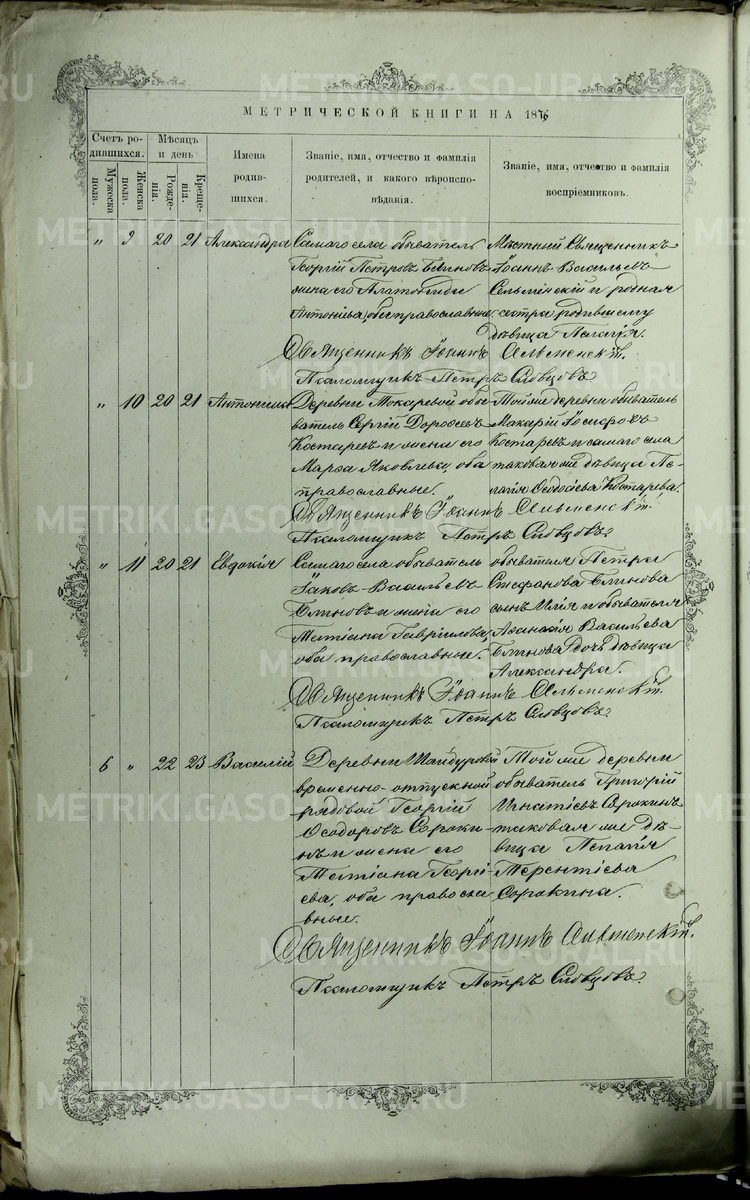 МЕТРИЧЕСКОЙ КНИГИ НА 1876
Счетъ ро-
дившихся.
Мужеска
пола.
Женска
пола.
Мѣсяцъ
и день
Рожде-
нія.
Креще-
нія.
Имена
родив-
шихся.
Званіе, имя, отчество и фамилія
родителей, и какого вѣроиспо-
вѣданія.
Званіе, имя, отчество и фамилія
воспріемниковъ.
" 9 20 21 Александра
Самаго села обыватель
Георгій Петровъ Блиновъ
жена его
Антонова, оба православные
Мѣстный Священникъ
Іоаннъ Васильевъ
Сельменскій и родная
сестра родившему
дѣвица Пелагія.
Священникъ Іоаннъ Сельменскій.
Псаломщикъ Петръ Словцовъ
" 10 20 21 Антонина
Деревни Токаревой обы-
ватель Сергій Дороѳеевъ
Костаревъ и жена его
Марѳа Яковлева, оба
православные.
Той же деревни обыватель
Макарій Іосифовъ
Костаревъ и самаго села
таковая же дѣвица Пе-
лагія Ѳеодосіева Костарева.
Священникъ Іоаннъ Сельменскій.
Псаломщикъ Петръ Словцовъ
" 11 20 21 Евдокія
Самаго села обыватель
Іаковъ Васильевъ
Блиновъ и жена его
Татіана Гавріилова,
оба православные.
обывателя Петра
Стефанова Блинова
сынъ Илія и обывателя
Аѳанасія Васильева
Блинова дочь дѣвица
Александра.
Священникъ Іоаннъ Сельменскій.
Псаломщикъ Петръ Словцовъ
6 " 22 23 Василій
Деревни Шайдуровой
временно-отпускной
рядовой Георгій
Ѳеодоровъ Сороки-
нъ и жена его
Татіана Георгі-
ева, оба правосла-
вные.
Той же деревни
обыватель Григорій
Игнатіевъ Сорокинъ
таковая же дѣ-
вица Пелагія
Терентіева
Сорокина.
Священникъ Іоаннъ Сельменскій.
Псаломщикъ Петръ Словцовъ
METRIKI.GASO-URAL.RU